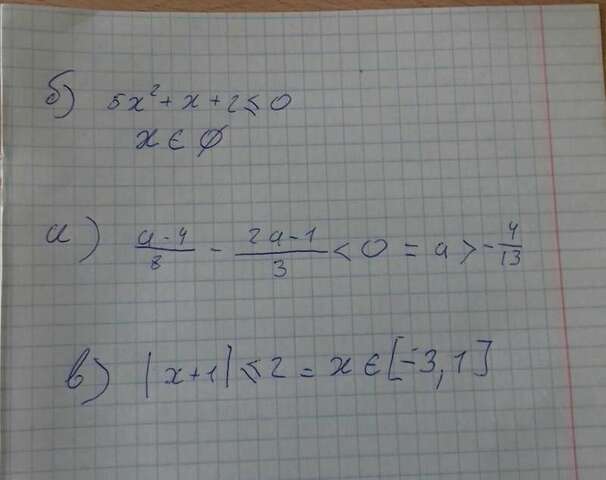 б) 5x²+x+2≤0
x ∈ ∅
а) (a-4)/8 - (2a-1)/3 < 0 = a > -4/13
в) |x+1| ≤ 2 = x ∈ [-3, 1]